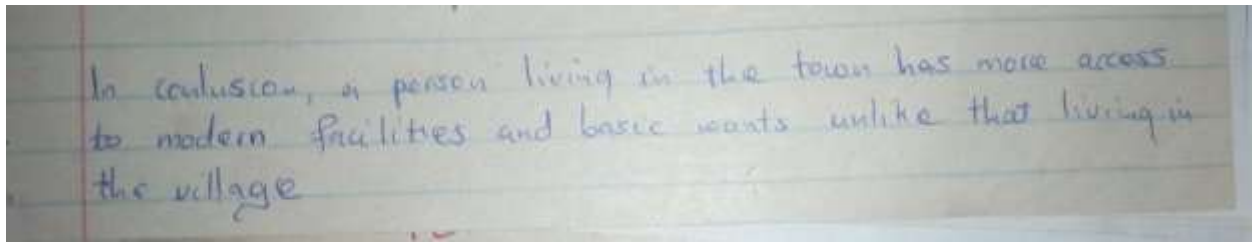 In conlusion, a person living in the town has more access
to modern facilities and basic wants unlike that living in
the village